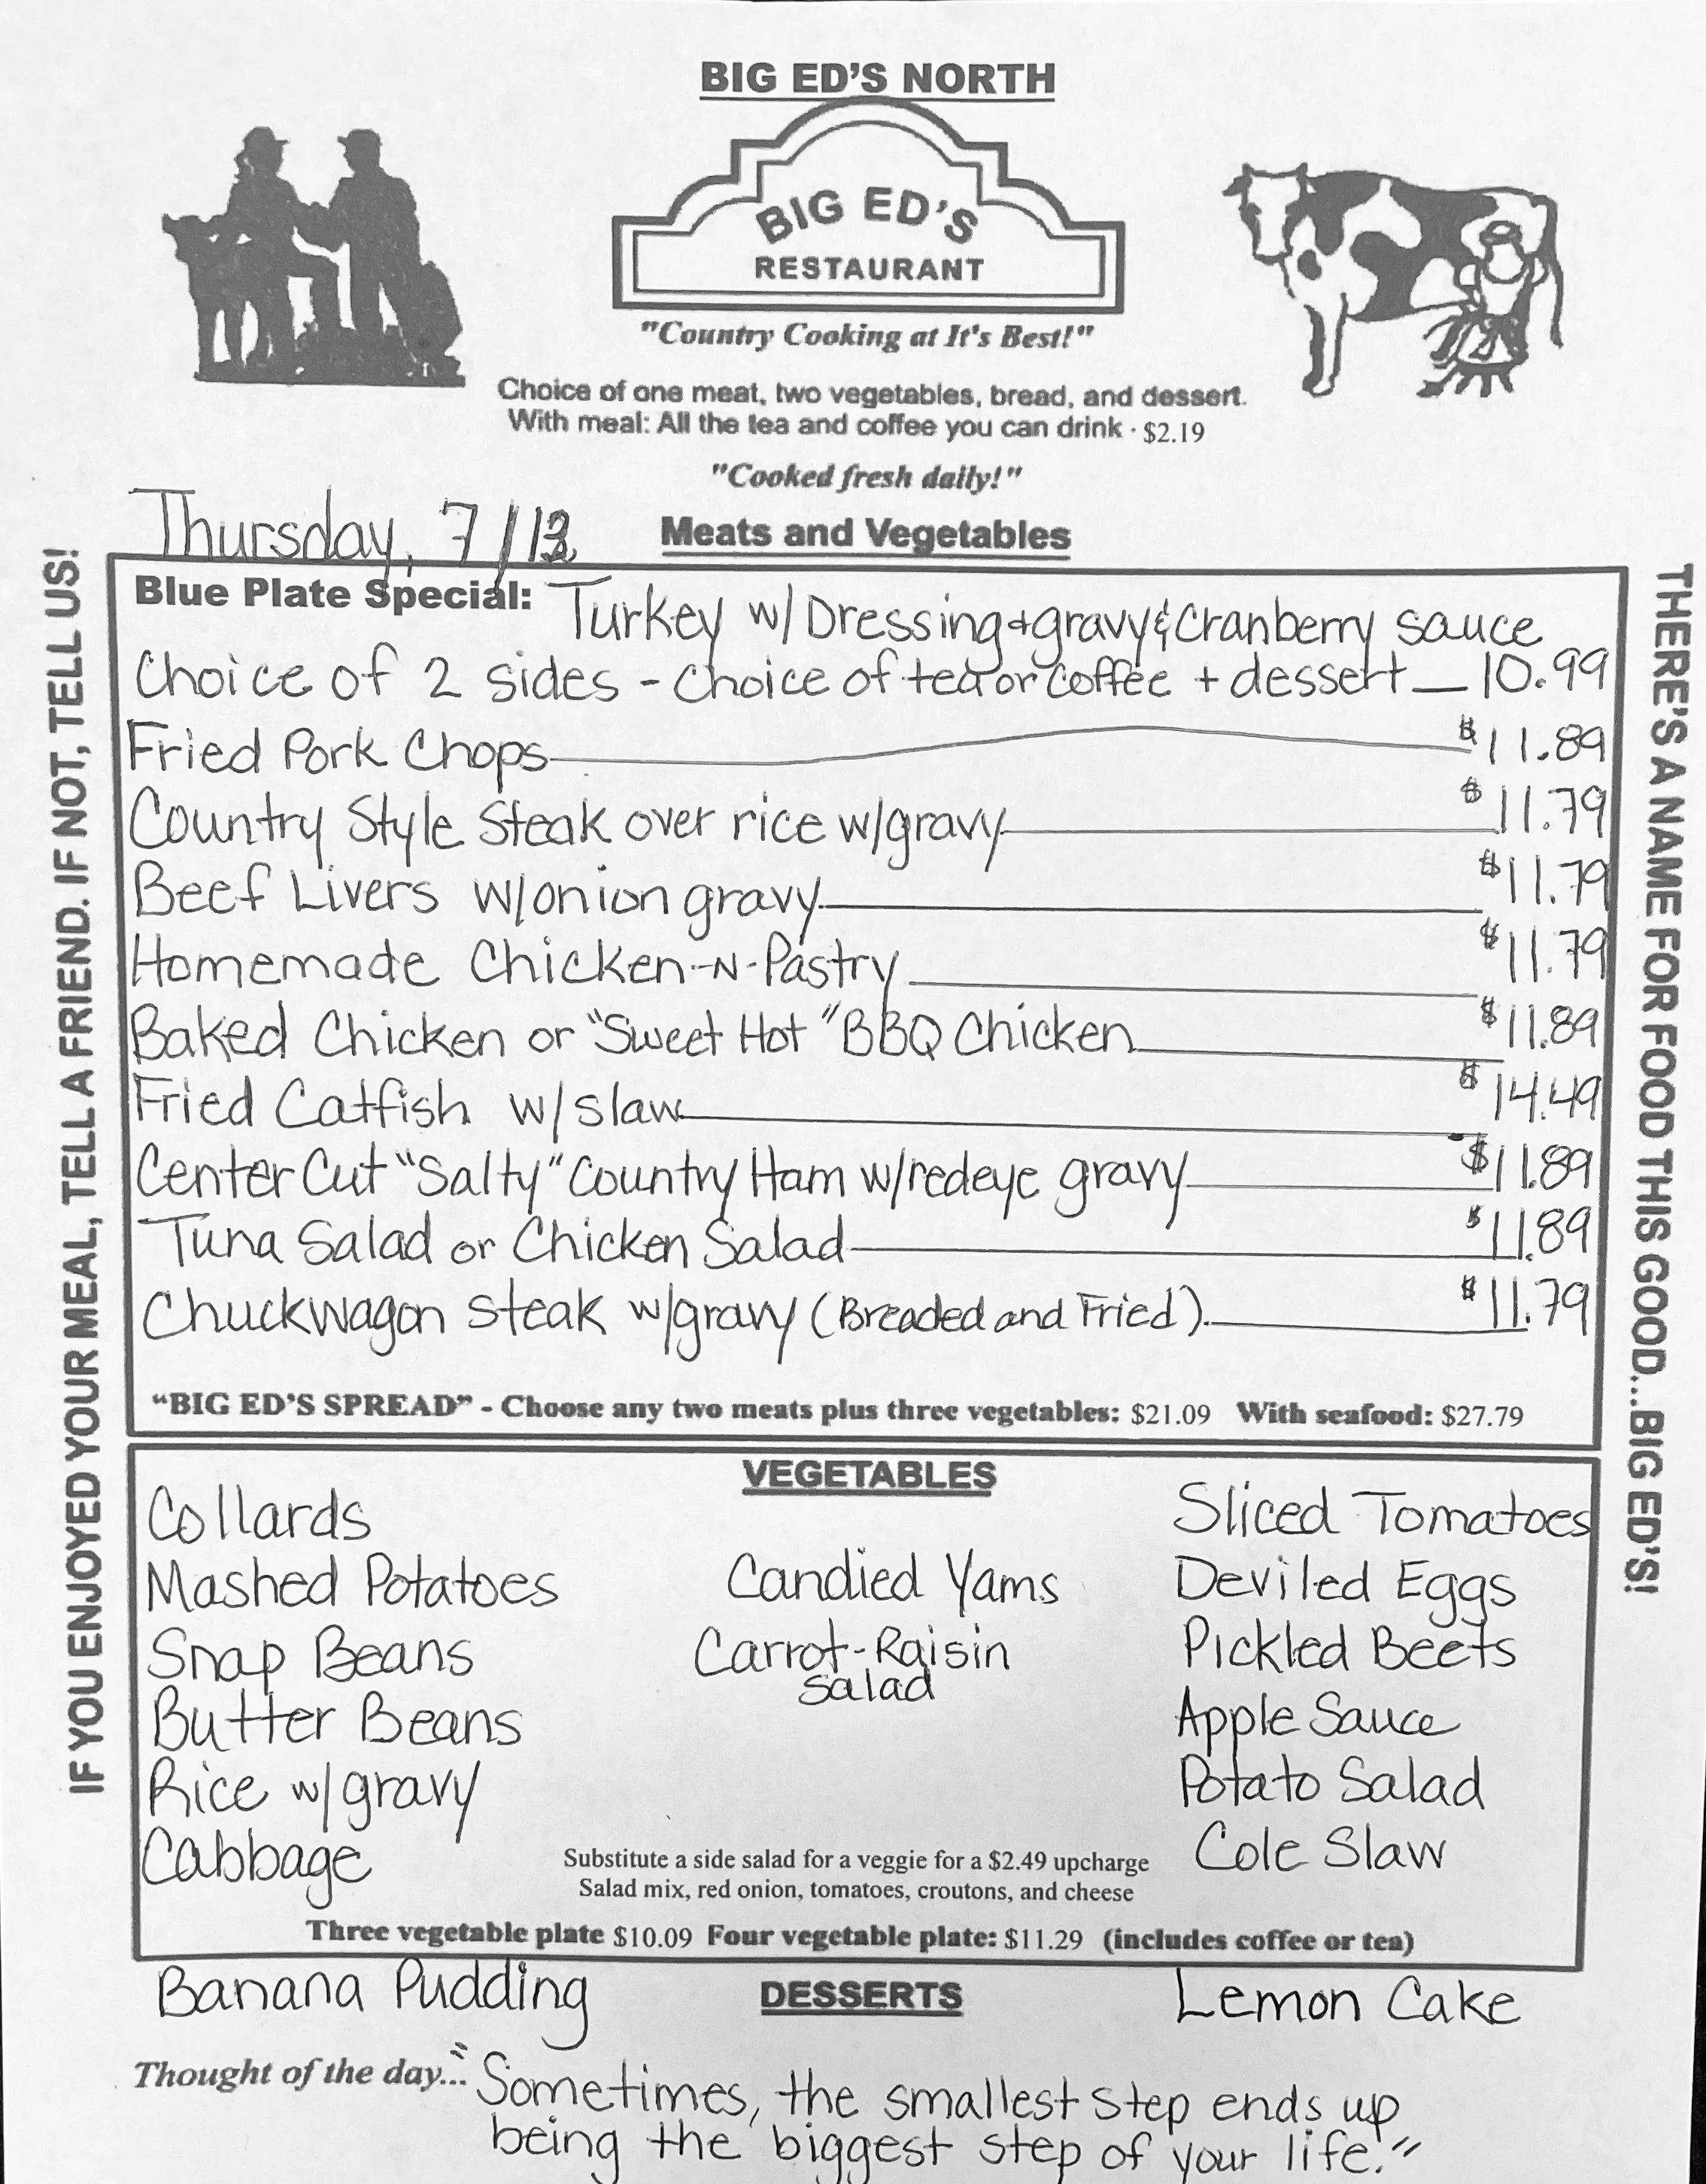 BIG ED'S NORTH
BIG ED'S
RESTAURANT
"Country Cooking at It's Best!"
Choice of one meat, two vegetables, bread, and dessert.
With meal: All the tea and coffee you can drink · $2.19
"Cooked fresh daily!"
Thursday, 7/13
Meats and Vegetables
IF YOU ENJOYED YOUR MEAL, TELL A FRIEND. IF NOT, TELL US!
THERE'S A NAME FOR FOOD THIS GOOD...BIG ED'S!
Blue Plate Special: Turkey w/ Dressing + gravy & Cranberry sauce
Choice of 2 sides - Choice of tea or Coffee + dessert 10.99
Fried Pork Chops $11.89
Country Style Steak over rice w/gravy $11.79
Beef Livers w/onion gravy $11.79
Homemade Chicken-N-Pastry $11.79
Baked Chicken or "Sweet Hot" BBQ Chicken $11.89
Fried Catfish w/slaw $14.49
Center Cut "Salty" Country Ham w/redeye gravy $11.89
Tuna Salad or Chicken Salad $11.89
Chuckwagon steak w/gravy (Breaded and Fried) $11.79
"BIG ED'S SPREAD" - Choose any two meats plus three vegetables: $21.09 With seafood: $27.79
VEGETABLES
Collards
Mashed Potatoes
Snap Beans
Butter Beans
Rice w/gravy
Cabbage
Candied Yams
Carrot-Raisin
Salad
Sliced Tomatoes
Deviled Eggs
Pickled Beets
Apple Sauce
Potato Salad
Cole Slaw
Substitute a side salad for a veggie for a $2.49 upcharge
Salad mix, red onion, tomatoes, croutons, and cheese
Three vegetable plate $10.09 Four vegetable plate: $11.29 (includes coffee or tea)
DESSERTS
Banana Pudding
Lemon Cake
Thought of the day... "Sometimes, the smallest step ends up
being the biggest step of your life."